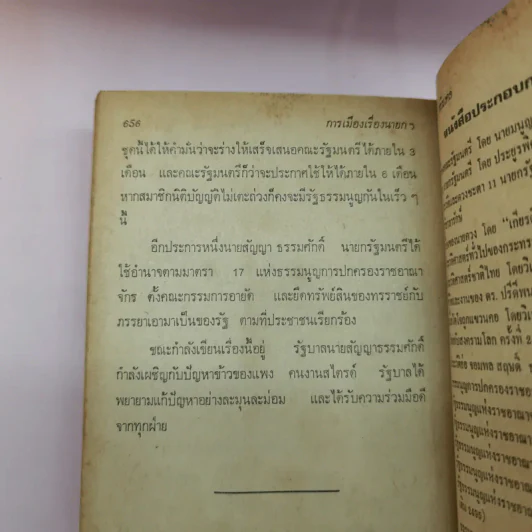 ๖๕๖
การเมืองเรื่องนายกฯ
ชุดนี้ได้ให้คำมั่นว่าจะร่างให้เสร็จเสนอคณะรัฐมนตรีได้ภายใน 3
เดือน และคณะรัฐมนตรีก็ว่าจะประกาศใช้ให้ได้ภายใน 6 เดือน
หากสมาชิกนิติบัญญัติไม่เตะถ่วงก็คงจะมีรัฐธรรมนูญกันในเร็ว ๆ
นี้
อีกประการหนึ่งนายสัญญา ธรรมศักดิ์ นายกรัฐมนตรีได้
ใช้อำนาจตามมาตรา 17 แห่งธรรมนูญการปกครองราชอาณา
จักร ตั้งคณะกรรมการอายัด และยึดทรัพย์สินของทรราชย์กับ
ภรรยาเอามาเป็นของรัฐ ตามที่ประชาชนเรียกร้อง
ขณะกำลังเขียนเรื่องนี้อยู่ รัฐบาลนายสัญญาธรรมศักดิ์
กำลังเผชิญกับปัญหาข้าวของแพง คนงานสไตรค์ รัฐบาลได้
พยายามแก้ปัญหาอย่างละมุนละม่อม และได้รับความร่วมมือดี
จากทุกฝ่าย
หนังสือประกอบ
รัฐมนตรี โดย
รัฐมนตรี โดย
11 นายก
โดย
ทั่วไปของกระทร
ศาสตร์ชาติไทย โดย
และงานของ ดร. ปรีดี
โดย
สงครามโลก ครั้งที่ 2
จอมพล สฤษดิ์
การปกครองราช
รัฐธรรมนูญแห่งราชอาณา
รัฐธรรมนูญแห่งราชอาณา
รัฐธรรมนูญแห่งราชอาณา
รัฐธรรมนูญแห่งราชอาณา
2495)